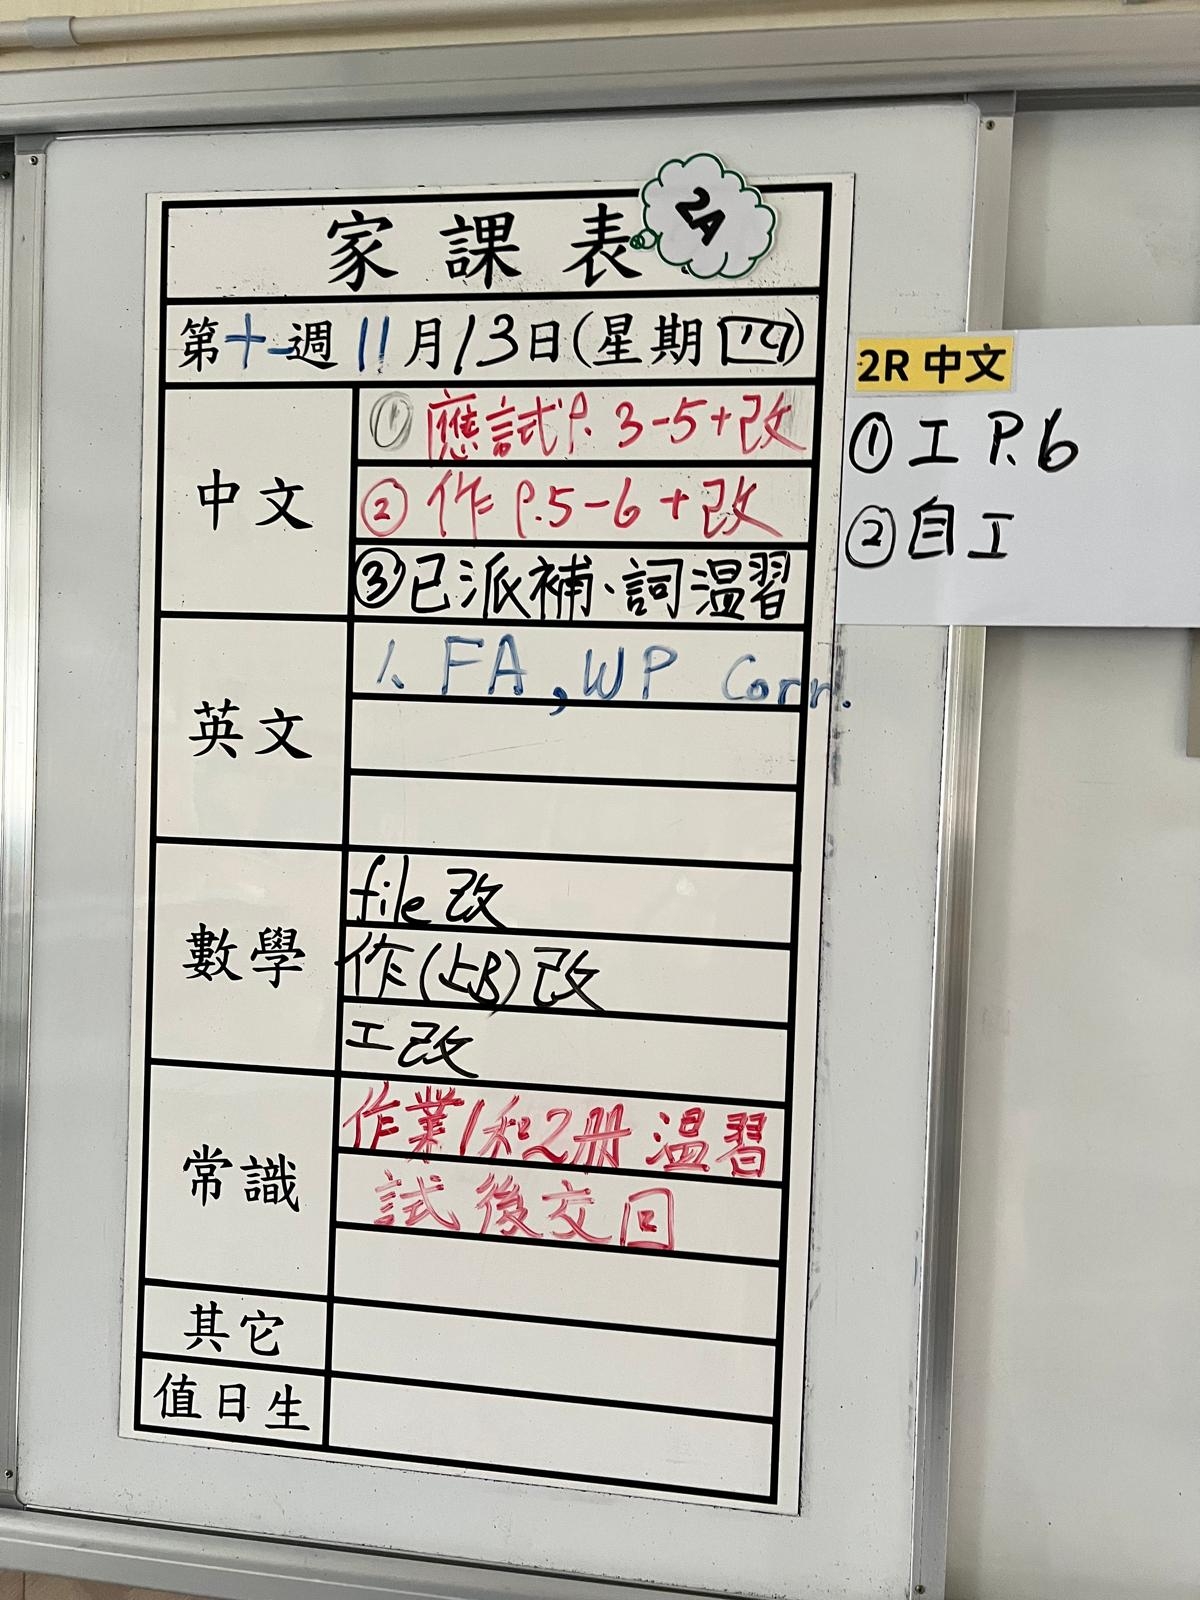 家課表
2A
第十一週11月13日(星期四)
中文
① 應試P.3-5+改
② 作P.5-6+改
③已派補、詞溫習
英文
1. FA, WP Corr.
數學
file改
作(上B)改
工改
常識
作業1和2冊溫習
試後交回
其它
值日生
2R 中文
①工P.6
②自工